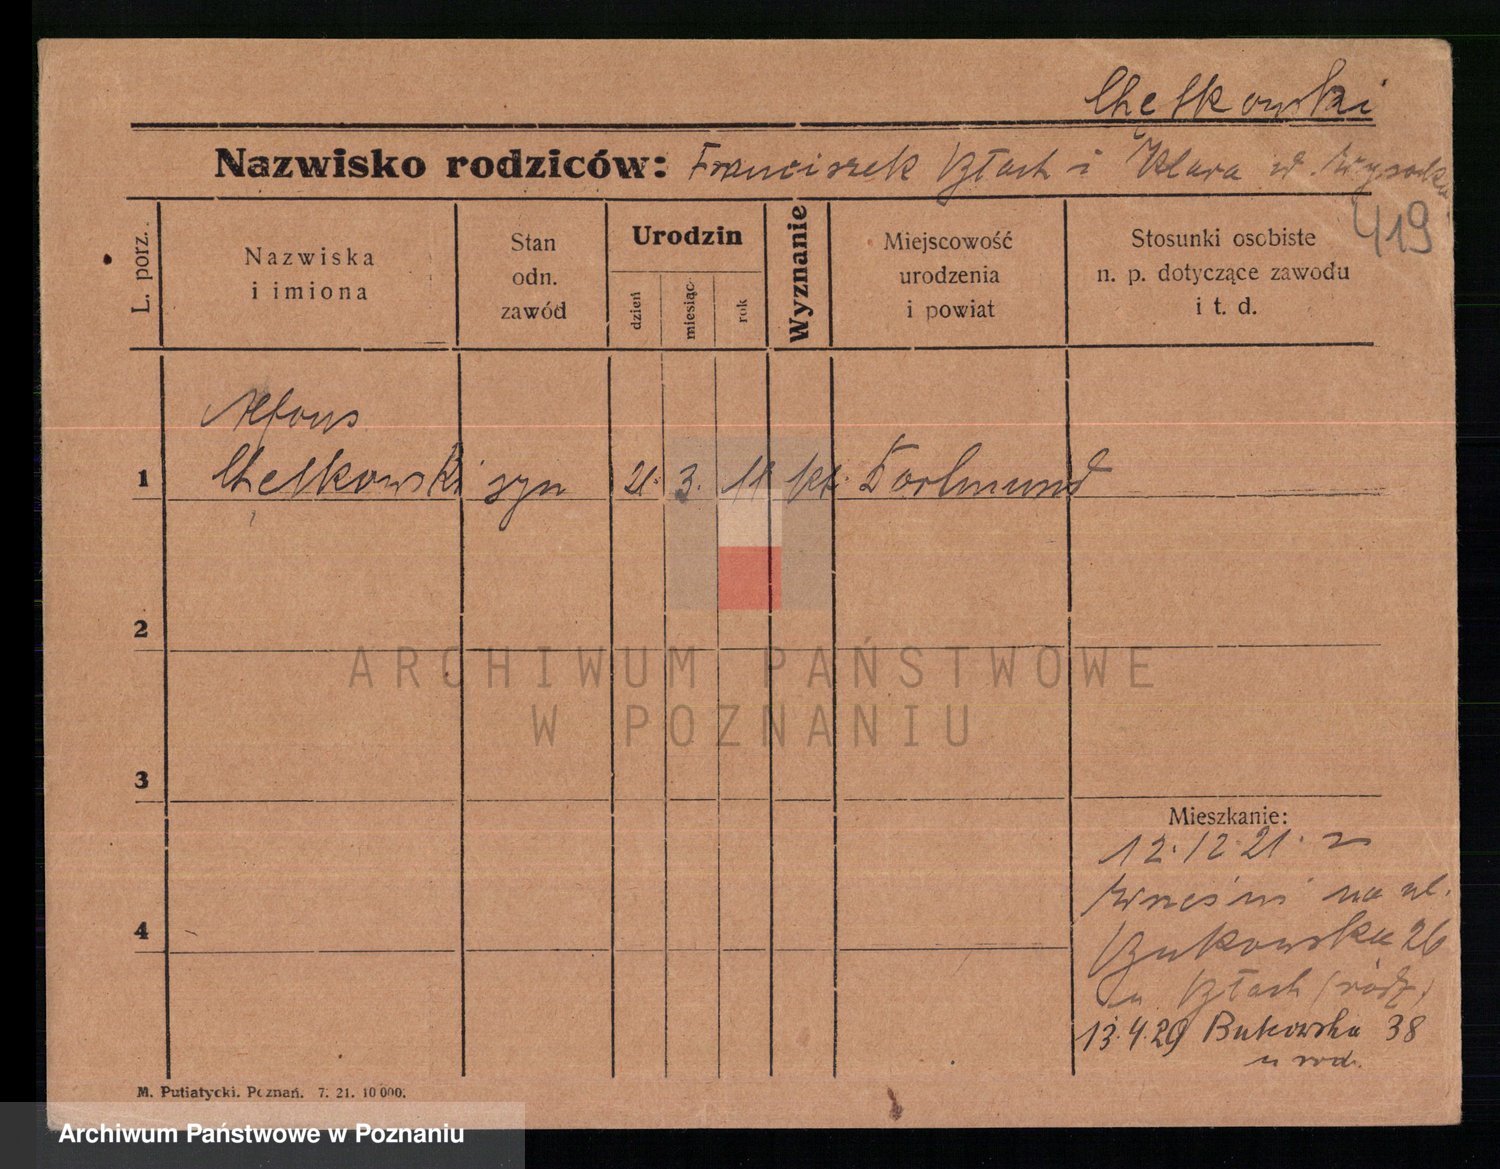 Chełkowski
Nazwisko rodziców: Franciszek Błach i Klara
419
L. porz.
Nazwiska
i imiona
Stan
odn.
zawód
Urodzin
dzień
miesiąc
rok
Wyznanie
Miejscowość
urodzenia
i powiat
Stosunki osobiste
n. p. dotyczące zawodu
i t. d.
Alfons
1 Chełkowski syn 21. 3. 11 kt. Dortmund
2
ARCHIWUM PAŃSTWOWE
W POZNANIU
3
Mieszkanie:
12.12.21. z
Wrześni na ul.
4
Bukowska 26
u Błach (rodz.)
13.4.29 Bukowska 38
u rod.
M. Putiatycki. Poznań. 7. 21. 10 000.
Archiwum Państwowe w Poznaniu